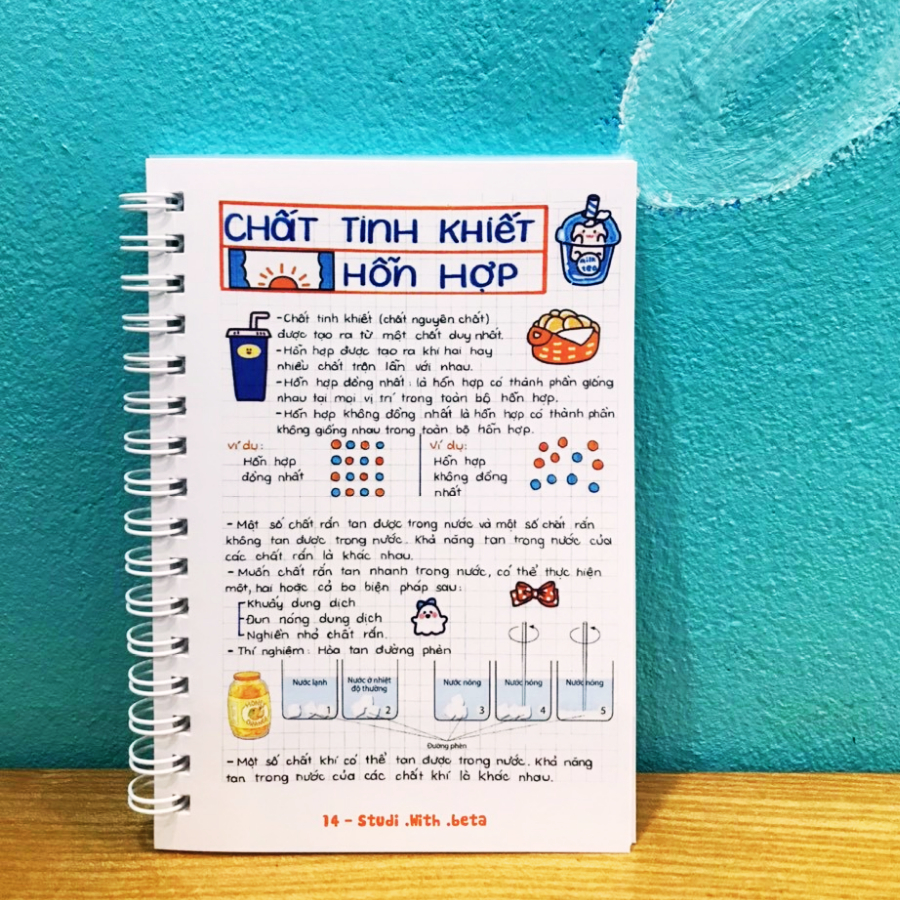 CHẤT TINH KHIẾT
HỖN HỢP
milk
tea
-Chất tinh khiết (chất nguyên chất)
được tạo ra từ một chất duy nhất.
-Hỗn hợp được tạo ra khi hai hay
nhiều chất trộn lẫn với nhau.
-Hỗn hợp đồng nhất: là hỗn hợp có thành phần giống
nhau tại mọi vị trí trong toàn bộ hỗn hợp.
-Hỗn hợp không đồng nhất là hỗn hợp có thành phần
không giống nhau trong toàn bộ hỗn hợp.
Ví dụ:
Hỗn hợp
đồng nhất
Ví dụ:
Hỗn hợp
không đồng
nhất
-Một số chất rắn tan được trong nước và một số chất rắn
không tan được trong nước. Khả năng tan trong nước của
các chất rắn là khác nhau.
-Muốn chất rắn tan nhanh trong nước, có thể thực hiện
một, hai hoặc cả ba biện pháp sau:
Khuấy dung dịch
Đun nóng dung dịch
Nghiền nhỏ chất rắn.
- Thí nghiệm: Hòa tan đường phèn
Nước lạnh
1
Nước ở nhiệt
độ thường
2
Nước nóng
3
Nước nóng
4
Nước nóng
5
Đường phèn
-Một số chất khí có thể tan được trong nước. Khả năng
tan trong nước của các chất khí là khác nhau.
14 - Studi .With .beta